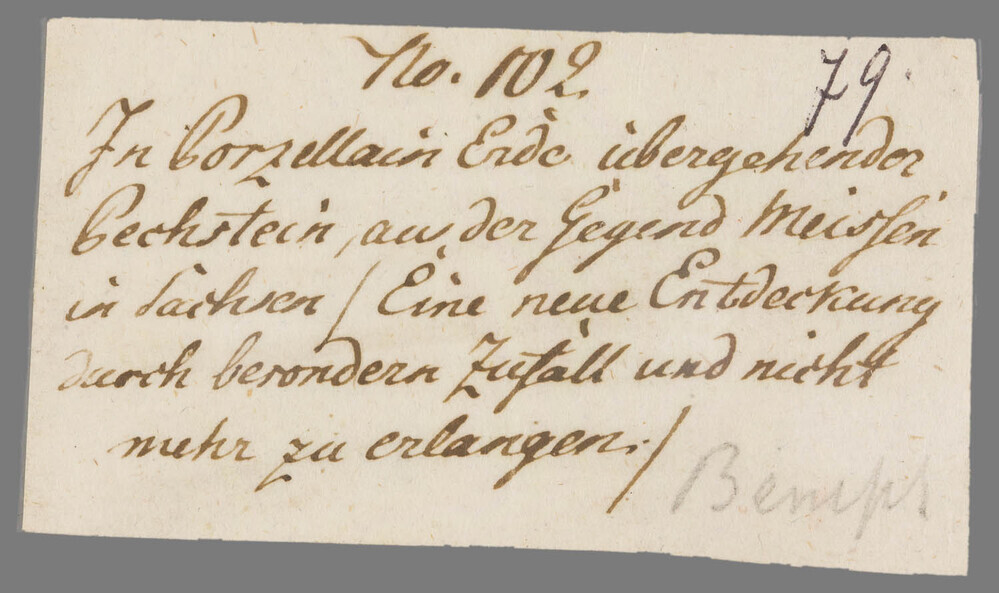 No. 102
79.
In Porzellain Erde übergehender
Pechstein, aus der Gegend Meissen
in Sachsen / Eine neue Entdeckung
durch besondern Zufall und nicht
mehr zu erlangen. /